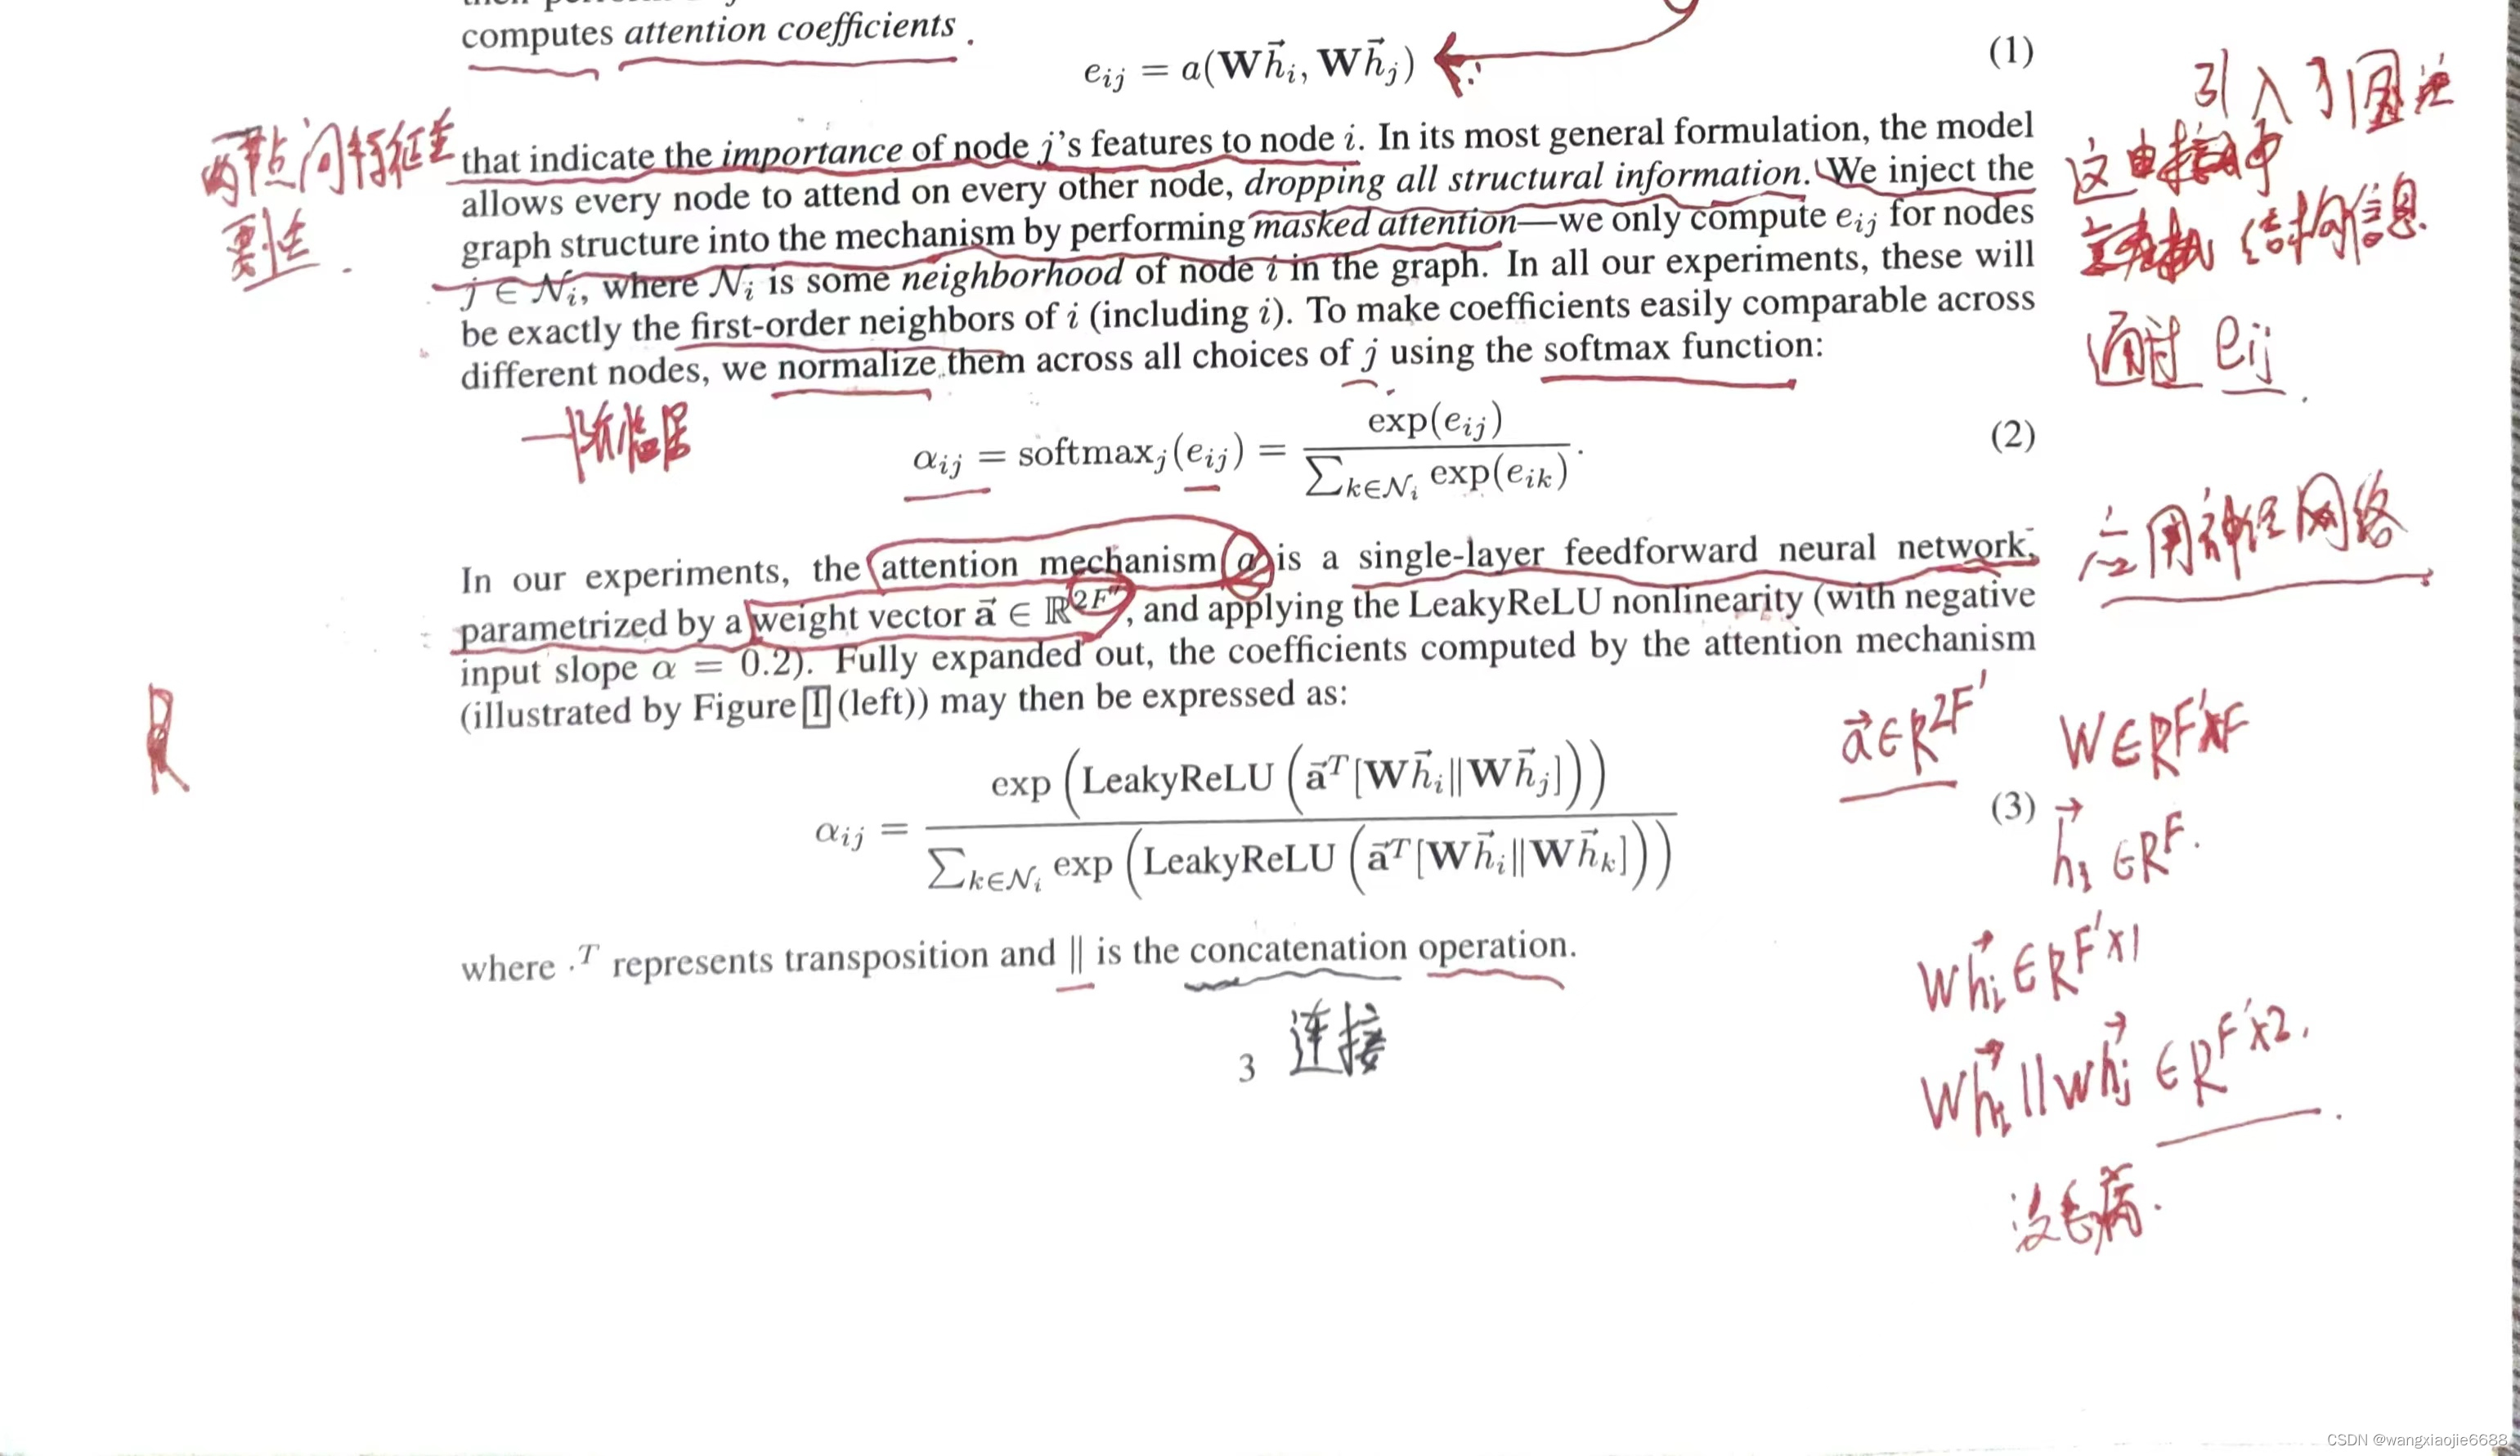 computes attention coefficients .
e_{ij} = a(W\vec{h}_i, W\vec{h}_j) (1)
两节点间特征重
要性.
引入了图
结构信息
通过 e_{ij}.
that indicate the importance of node j's features to node i. In its most general formulation, the model
allows every node to attend on every other node, dropping all structural information. We inject the
graph structure into the mechanism by performing masked attention—we only compute e_{ij} for nodes
j ∈ N_i, where N_i is some neighborhood of node i in the graph. In all our experiments, these will
be exactly the first-order neighbors of i (including i). To make coefficients easily comparable across
different nodes, we normalize them across all choices of j using the softmax function:
一阶临居
α_{ij} = softmax_j(e_{ij}) = exp(e_{ij}) / ∑_{k∈N_i} exp(e_{ik}) . (2)
应用神经网络
In our experiments, the attention mechanism a is a single-layer feedforward neural network,
parametrized by a weight vector \vec{a} ∈ ℝ^{2F'}, and applying the LeakyReLU nonlinearity (with negative
input slope α = 0.2). Fully expanded out, the coefficients computed by the attention mechanism
(illustrated by Figure 1 (left)) may then be expressed as:
R
α_{ij} = exp(LeakyReLU(\vec{a}^T[W\vec{h}_i||W\vec{h}_j])) / ∑_{k∈N_i} exp(LeakyReLU(\vec{a}^T[W\vec{h}_i||W\vec{h}_k])) (3)
\vec{a}∈R^{2F'}
W∈R^{F'×F}
\vec{h}_i ∈R^F.
W\vec{h}_i ∈R^{F'×1}
W\vec{h}_i||W\vec{h}_j ∈R^{F'×2}.
没毛病.
where ·^T represents transposition and || is the concatenation operation.
连接
3
CSDN @wangxiaojie6688